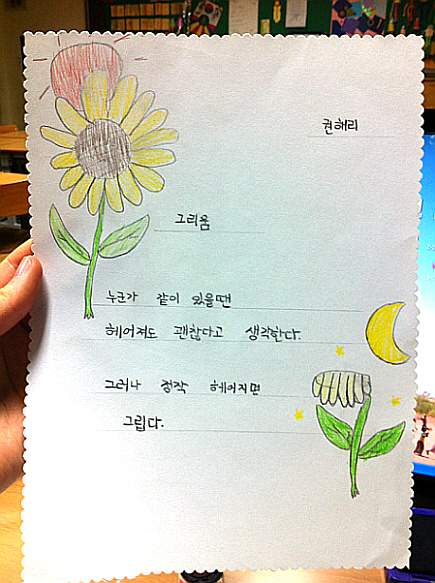 권해리
그리움
누군가 같이 있을땐
헤어져도 괜찮다고 생각한다.
그러나 정작 헤어지면
그립다.